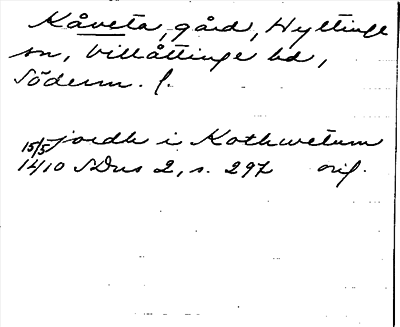 Kåveta, gård, Hyltinge
sn, Villåttinge hd,
Söderm. l.
15/5 jordh i Kothwetum
1410 SDns 2, s. 297 orig.